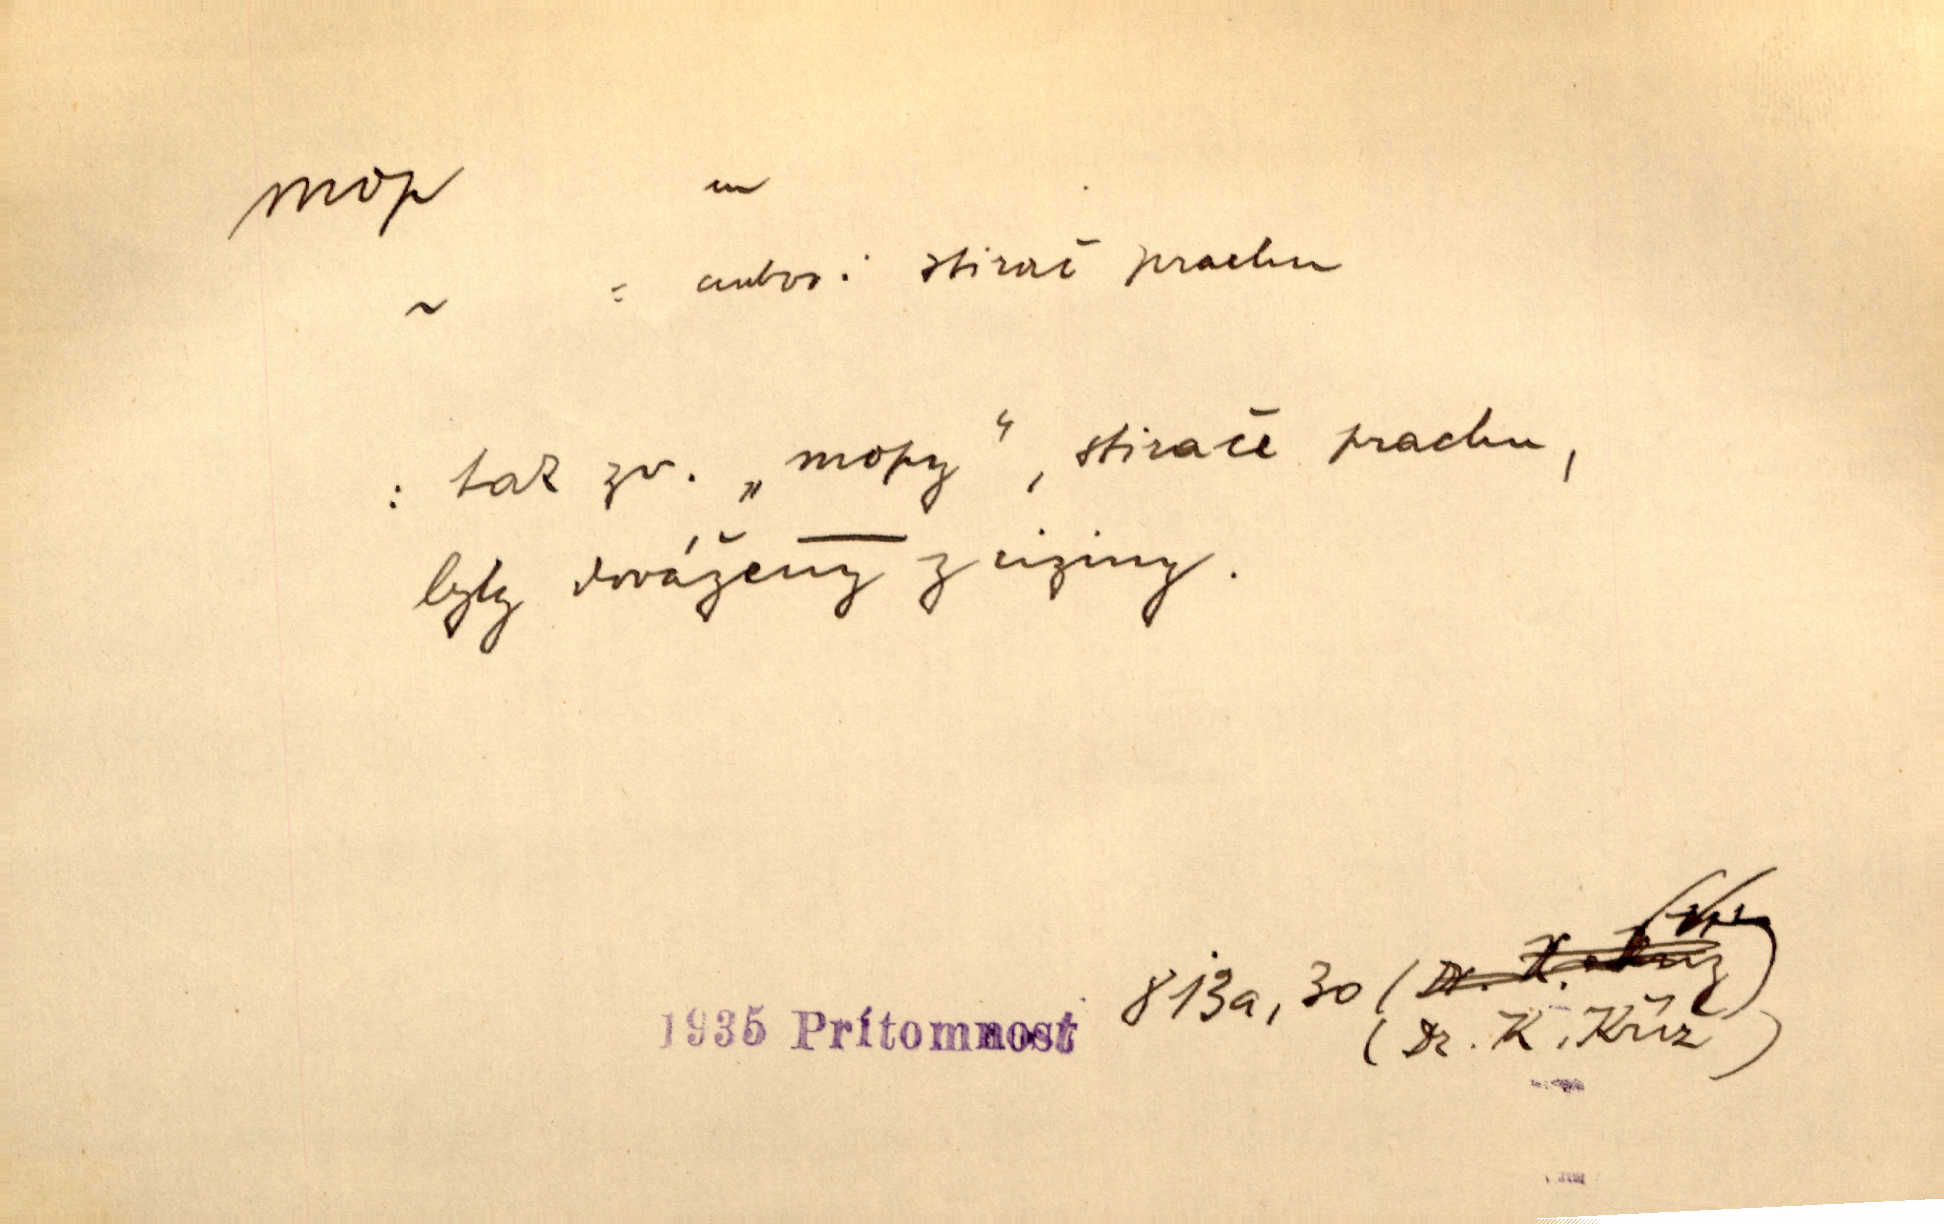 mop m
~ = anbo: stírač prachu
: tak zv. „mopy“, stírače prachu,
byly dováženy z ciziny.
813a, 30 (Dr. K. Kříž)
1935 Prítomnost
(Dr. K. Kříž)